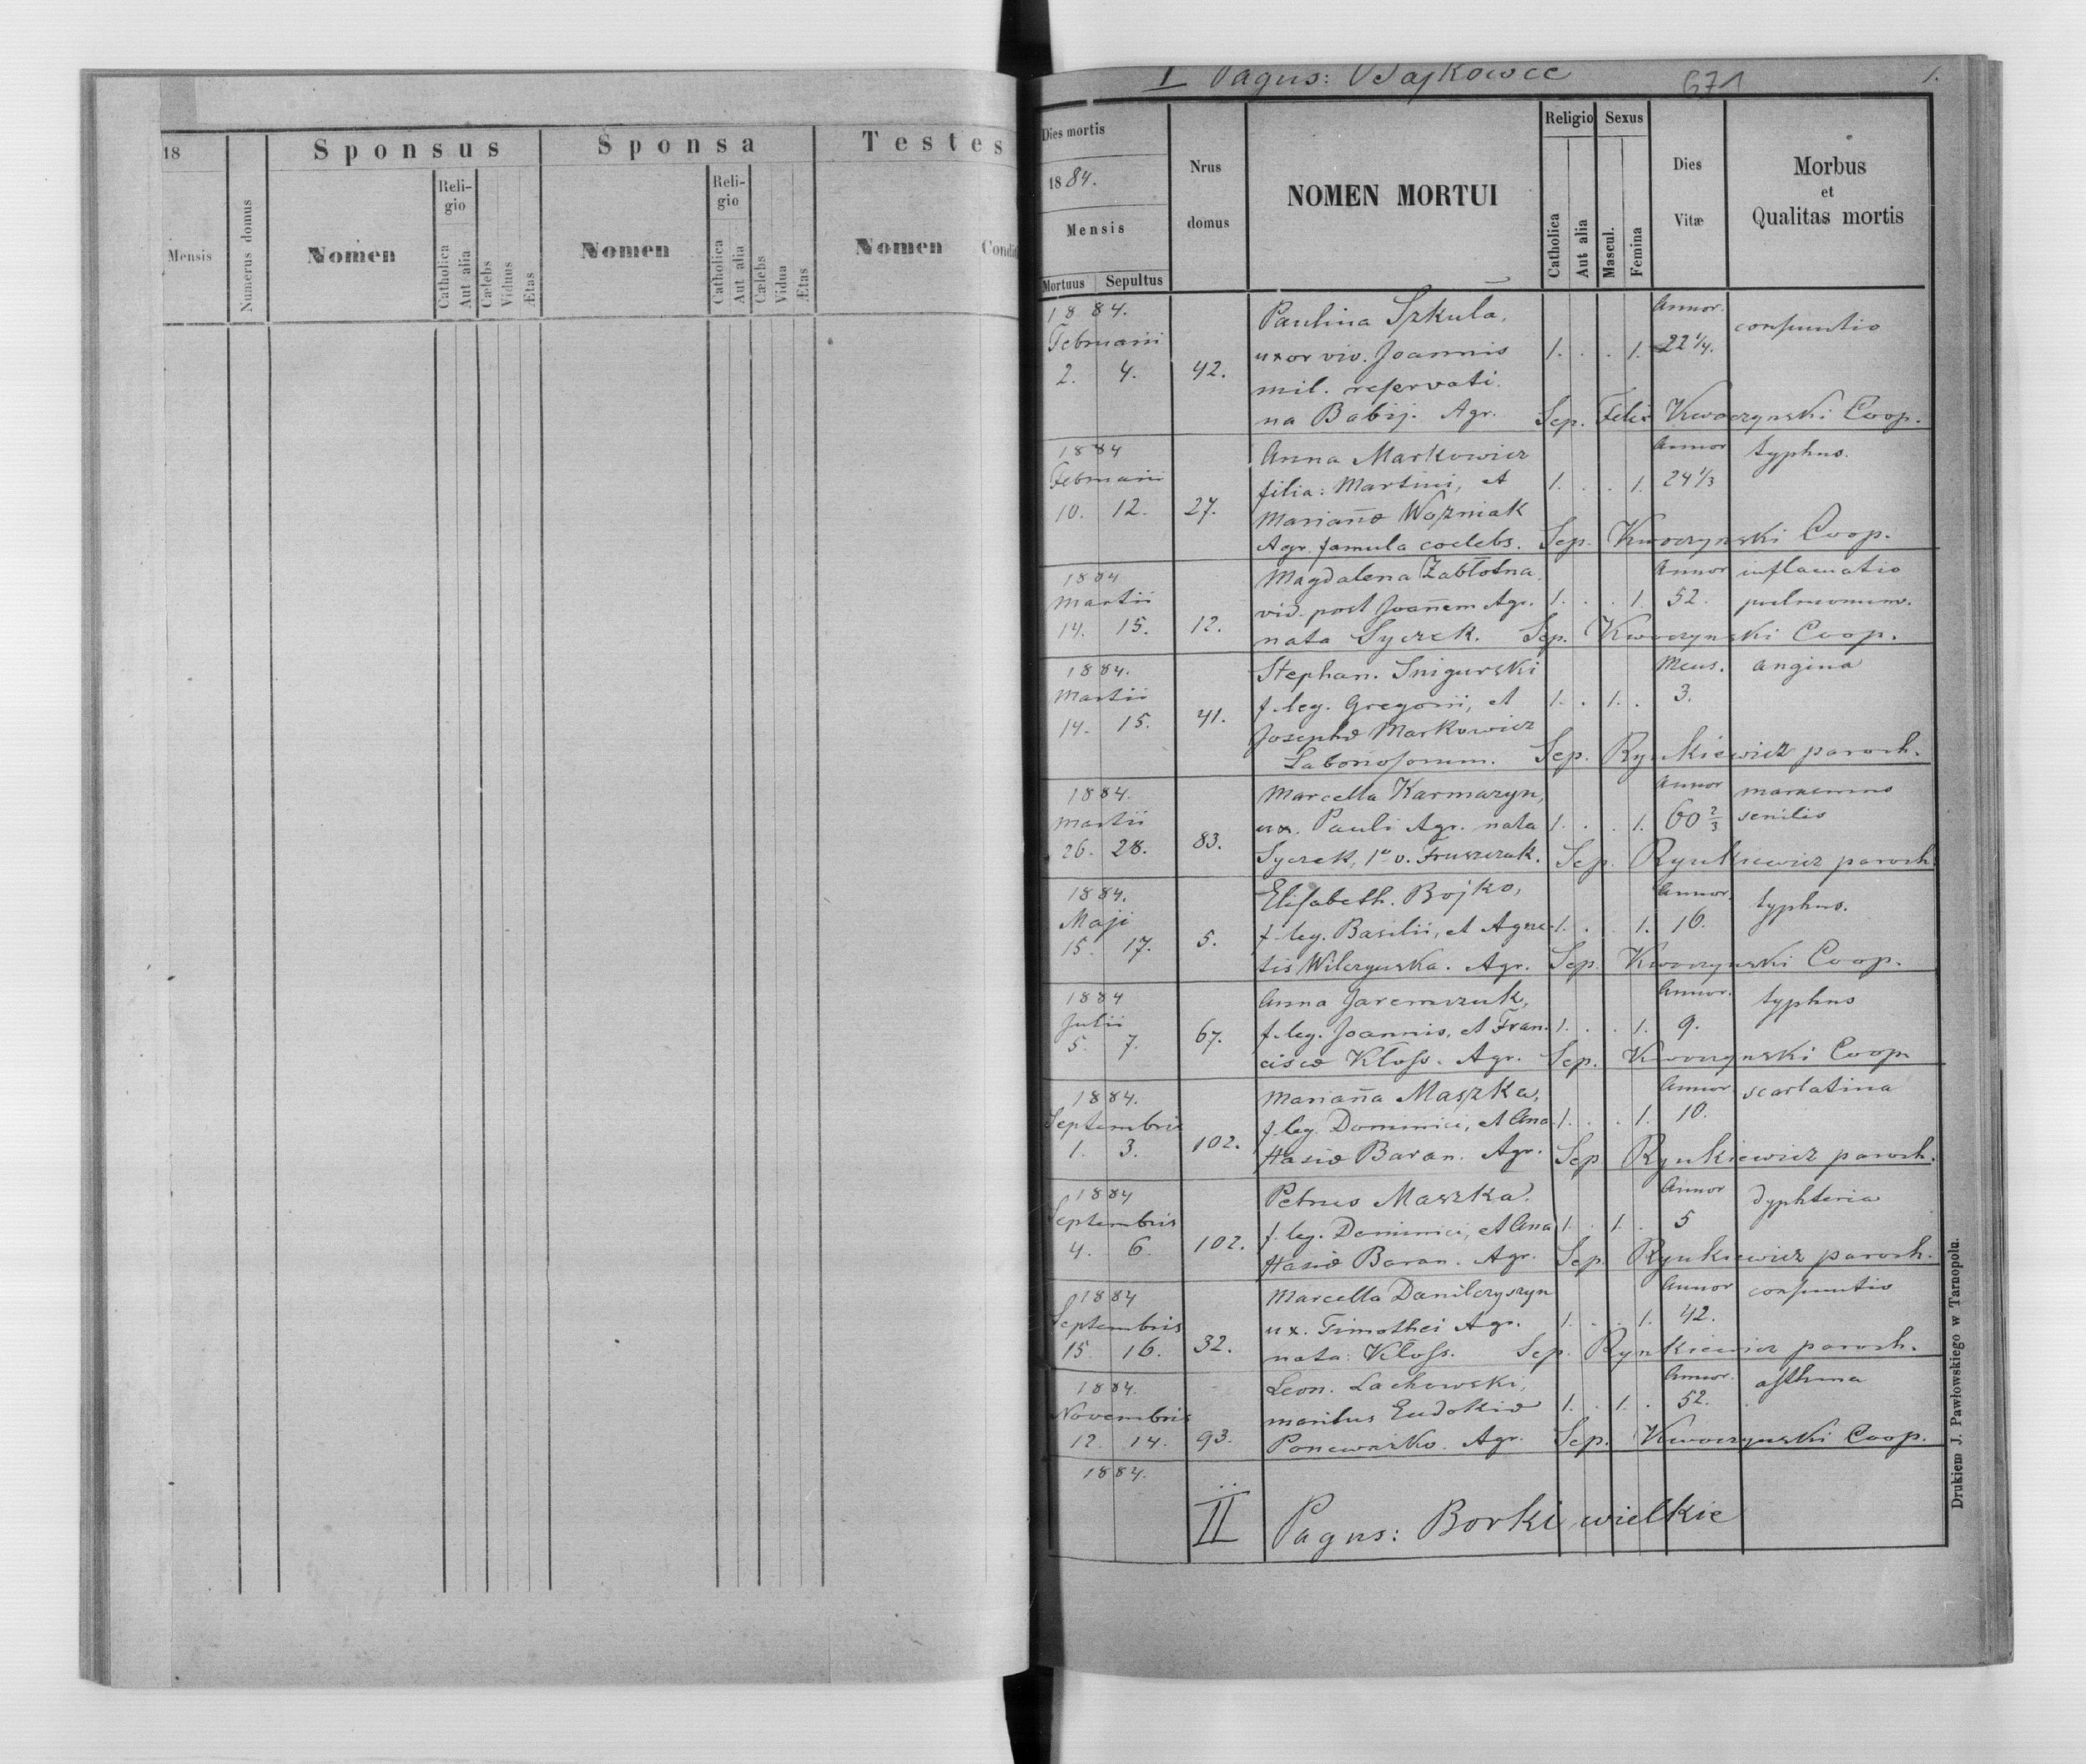 Sponsus Sponsa Testes
18
Numerus domus
Mensis
Nomen
Reli-
gio
Catholica
Aut alia
Cælebs
Viduus
Ætas
Nomen
Reli-
gio
Catholica
Aut alia
Cælebs
Vidua
Ætas
Nomen Condit
I Pagus: Bajkowce 671 1.
Dies mortis
1884.
Mensis
Mortuus Sepultus
Nrus
domus
NOMEN MORTUI
Religio
Catholica
Aut alia
Sexus
Mascul.
Femina
Dies
Vitæ
Morbus
et
Qualitas mortis
1884. Paulina Szkula, Annor. consumtio
Februarii uxor viv. Joannis 1. . . 1. 22 1/4.
2. 4. 42. mil. reservati
na Babij. Agr. Sep. Felix Kwoczynski Coop.
1884 Anna Markowicz Annor typhus.
Februarii filia: Martini, et 1. . . 1. 24 1/3
10. 12. 27. Mariañæ Wozniak
Agr. famula coelebs. Sep. Kwoczynski Coop.
1884 Magdalena Zabłotna, Annor inflamatio
Martii vid. post Joañem Agr. 1. . . 1. 52. pulmonum.
14. 15. 12. nata Syczek. Sep. Kwoczynski Coop.
1884. Stephan. Snigurski Mens. angina
Martii f. leg. Gregorii, et 1. . 1. . 3.
14. 15. 41. Josephæ Markowicz
Laboriosorum. Sep. Rynkiewicz paroch.
1884. Marcella Karmazyn, Annor marasmus
Martii ux. Pauli Agr. nata 1. . . 1. 60 2/3 senilis
26. 28. 83. Syczek, 1º v. Fruszczak. Sep. Rynkiewicz paroch.
1884. Elisabeth. Bojko, Annor. typhus.
Maji f. leg. Basilii, et Agne- 1. . . 1. 16.
15. 17. 5. tis Wilczynska. Agr. Sep. Kwoczynski Coop.
1884 Anna Jaremczuk, Annor. typhus
Julii f. leg. Joannis, et Fran- 1. . . 1. 9.
5. 7. 67. ciscæ Kłoss. Agr. Sep. Kwoczynski Coop.
1884. Mariaña Maszka, Annor scarlatina
Septembris f. leg. Dominici, et Ana- 1. . . 1. 10.
1. 3. 102. stasiæ Baran. Agr. Sep Rynkiewicz paroch.
1884 Petrus Maszka. Annor dyphteria
Septembris f. leg. Dominici, et Ana 1. . 1. . 5
4. 6. 102. stasiæ Baran. Agr. Sep. Rynkiewicz paroch.
1884 Marcella Danilczyszyn Annor consumtio
Septembris ux. Timothei Agr. 1. . . 1. 42.
15. 16. 32. nata: Kłoss. Sep. Rynkiewicz paroch.
1884. Leon. Lachowski, Annor. asthma
Novembris maritus Eudokiæ 1. . 1. . 52.
12. 14. 93. Agr. Sep. Kwoczynski Coop.
1884.
II Pagus: Borki wielkie
Drukiem J. Pawłowskiego w Tarnopolu.